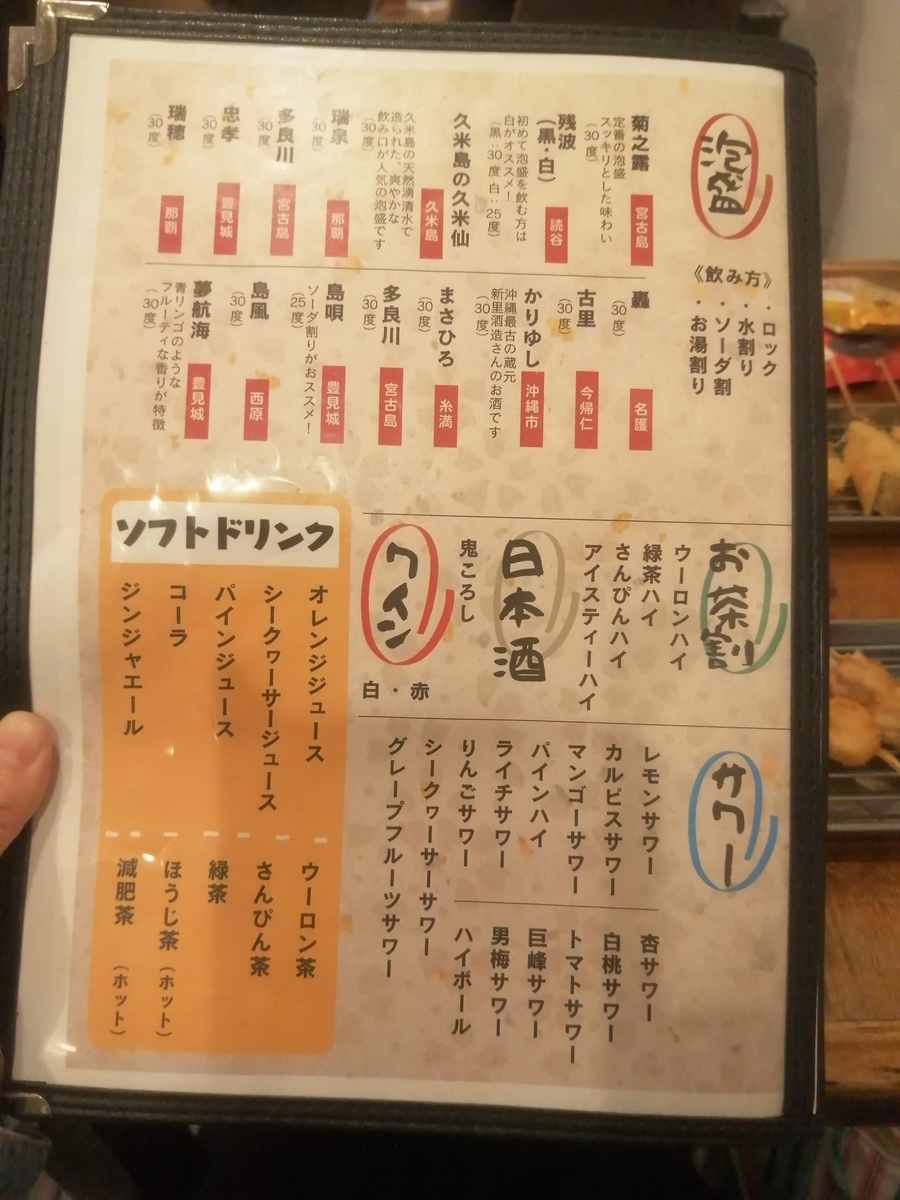 泡盛
《飲み方》
・ロック
・水割り
・ソーダ割
・お湯割り
菊之露
宮古島
定番の泡盛
スッキリとした味わい
(30度)
残波
(黒・白)
読谷
初めて泡盛を飲む方は
白がオススメ!
(黒:30度 白:25度)
久米島の久米仙
久米島
久米島の天然湧清水で
造られた、爽やかな
飲み口が人気の泡盛です
(30度)
瑞泉
那覇
(30度)
多良川
宮古島
(30度)
忠孝
豊見城
(30度)
瑞穂
那覇
(30度)
轟
名護
(30度)
古里
今帰仁
(30度)
かりゆし
沖縄市
沖縄最古の蔵元
新里酒造さんのお酒です
(30度)
まさひろ
糸満
(30度)
多良川
宮古島
(30度)
島唄
豊見城
ソーダ割りがおススメ!
(25度)
島風
西原
(30度)
夢航海
豊見城
青リンゴのような
フルーティな香りが特徴
(30度)
お茶割
ウーロンハイ
緑茶ハイ
さんぴんハイ
アイスティーハイ
日本酒
鬼ころし
ワイン
白・赤
サワー
レモンサワー
カルピスサワー
マンゴーサワー
パインハイ
ライチサワー
りんごサワー
シークヮーサーサワー
グレープフルーツサワー
杏サワー
白桃サワー
トマトサワー
巨峰サワー
男梅サワー
ハイボール
ソフトドリンク
オレンジジュース
シークヮーサージュース
パインジュース
コーラ
ジンジャエール
ウーロン茶
さんぴん茶
緑茶
ほうじ茶(ホット)
減肥茶(ホット)